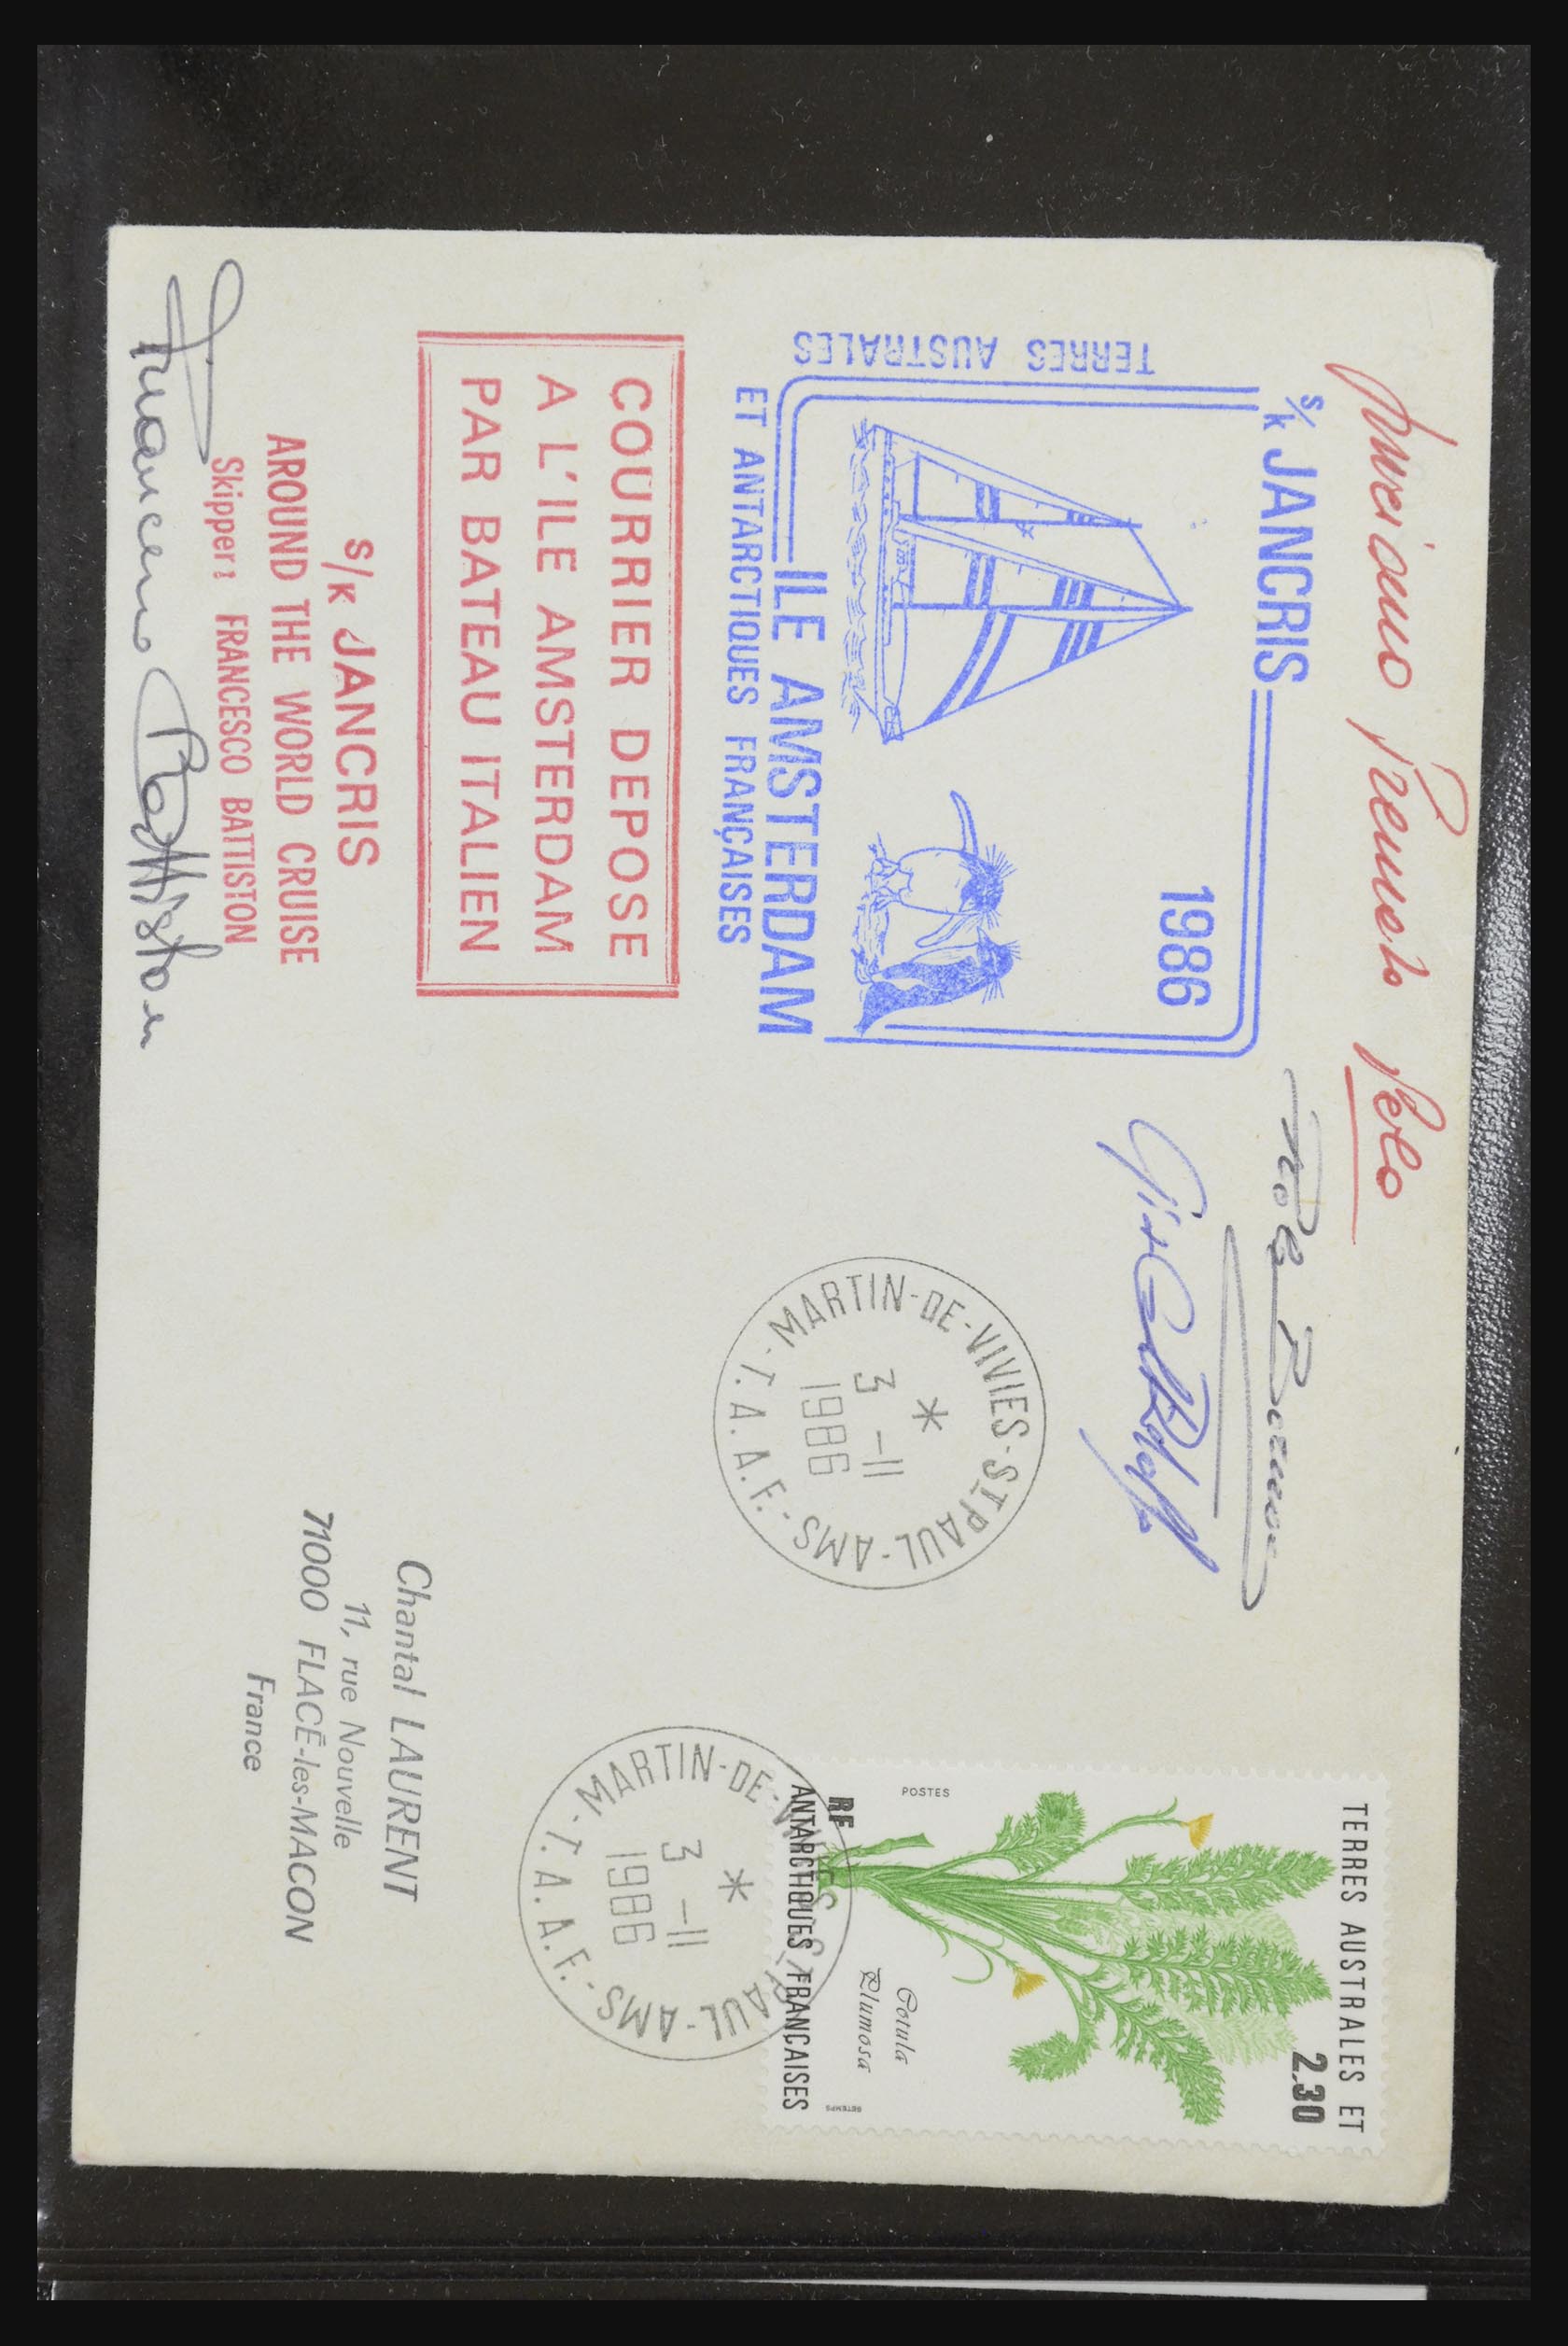 Polo
S/K JANCRIS
1986
TERRES AUSTRALES
ILE AMSTERDAM
ET ANTARCTIQUES FRANÇAISES
COURRIER DEPOSE
A L'ILE AMSTERDAM
PAR BATEAU ITALIEN
S/K JANCRIS
AROUND THE WORLD CRUISE
Skipper: FRANCESCO BATTISTON
Francesco Battiston
MARTIN-DE-VIVIES-ST PAUL-AMS
*
3 -11
1986
T.A.A.F.
TERRES AUSTRALES ET
2.30
POSTES
Cotula
Plumosa
RF
BETEMPS
ANTARCTIQUES FRANÇAISES
MARTIN-DE-VIVIES-ST PAUL-AMS
*
3 -11
1986
T.A.A.F.
Chantal LAURENT
11, rue Nouvelle
71000 FLACÉ-les-MACON
France